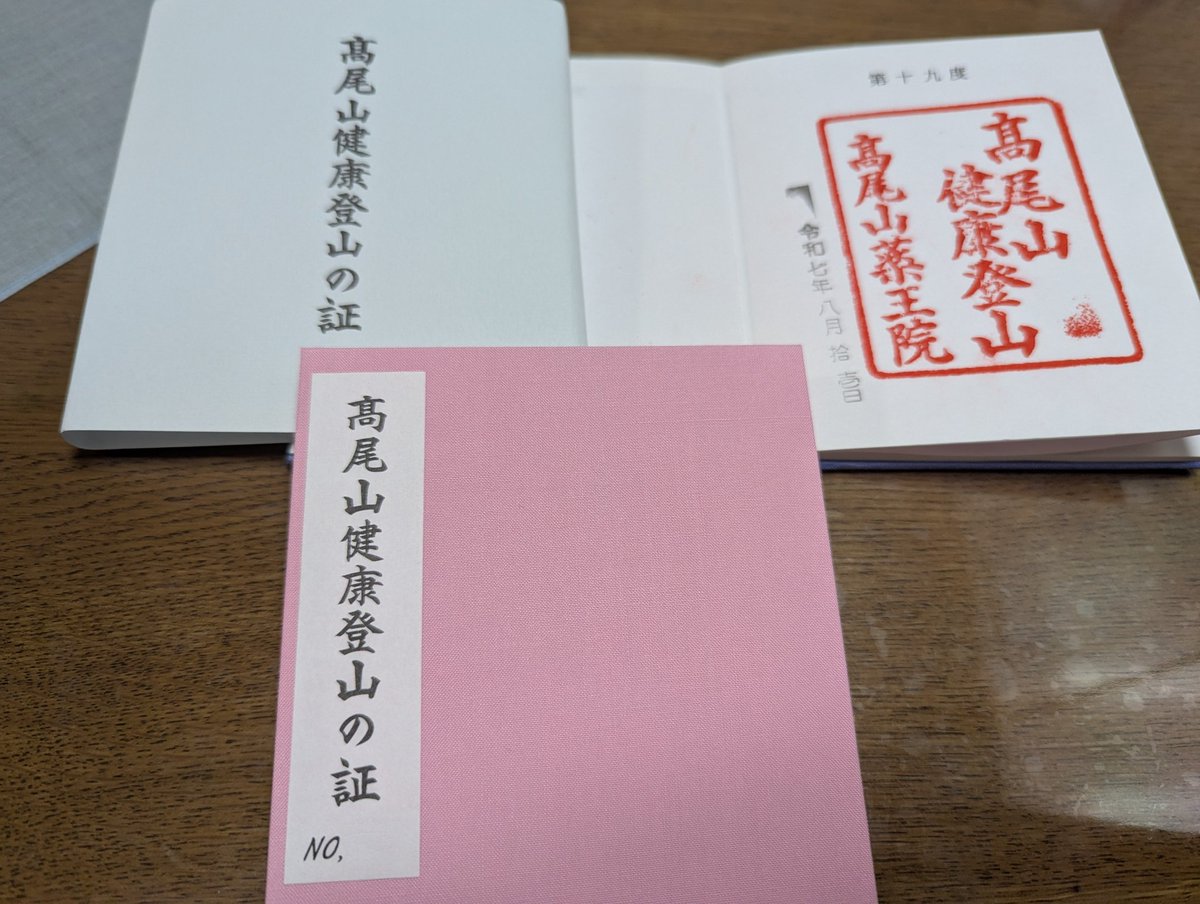 髙尾山健康登山の証
第十九度
髙尾山
健康登山
髙尾山薬王院
令和七年八月拾壱日
髙尾山健康登山の証
NO,